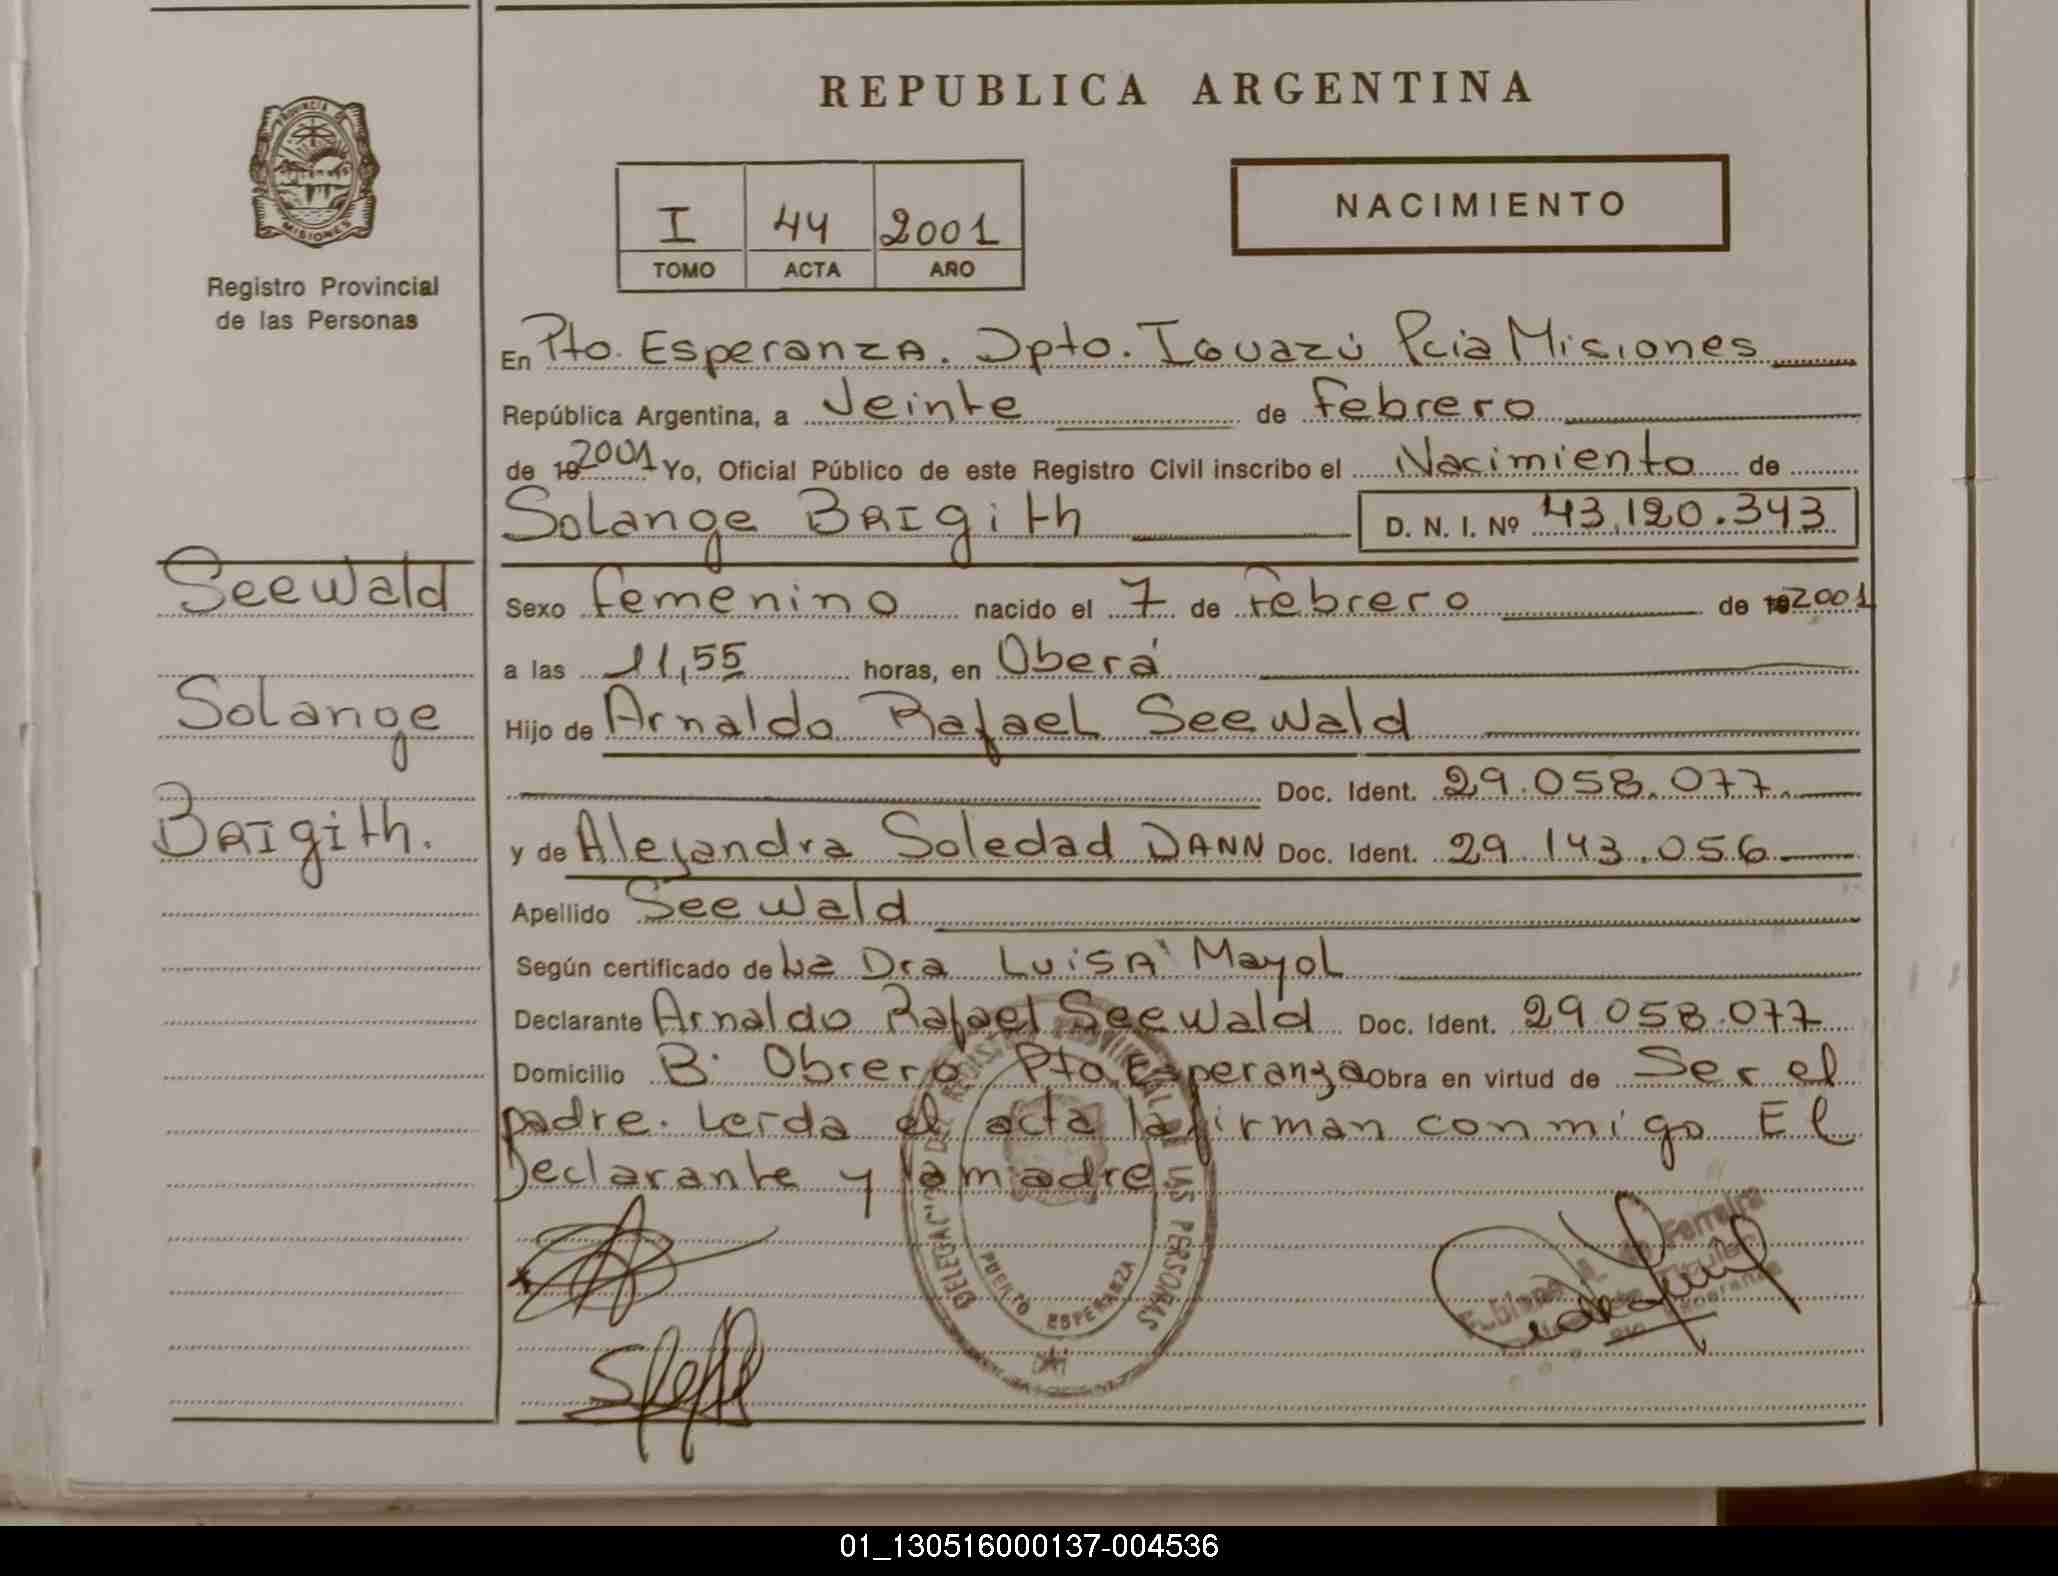 REPUBLICA ARGENTINA
PROVINCIA DE
MISIONES
Registro Provincial
de las Personas
I 44 2001
TOMO ACTA AÑO
NACIMIENTO
En Pto. Esperanza. Dpto. Iguazú Pcia Misiones
República Argentina, a Veinte de Febrero
de 19 2001 Yo, Oficial Público de este Registro Civil inscribo el Nacimiento de
Solange Brigith D. N. I. Nº 43.120.343
Seewald
Solange
Brigith.
Sexo Femenino nacido el 7 de Febrero de 19 2001
a las 11,55 horas, en Oberá
Hijo de Arnaldo Rafael Seewald
Doc. Ident. 29.058.077
y de Alejandra Soledad DANN Doc. Ident. 29.143.056
Apellido Seewald
Según certificado de La Dra Luisa Mayol
Declarante Arnaldo Rafael Seewald Doc. Ident. 29.058.077
Domicilio Bº Obrero Pto. Esperanza Obra en virtud de Ser el
padre. Leída el acta la firman conmigo El
Declarante y la madre
DELEGACION DEL REGISTRO PROVINCIAL DE LAS PERSONAS
PUERTO ESPERANZA
Ferreira
01_130516000137-004536